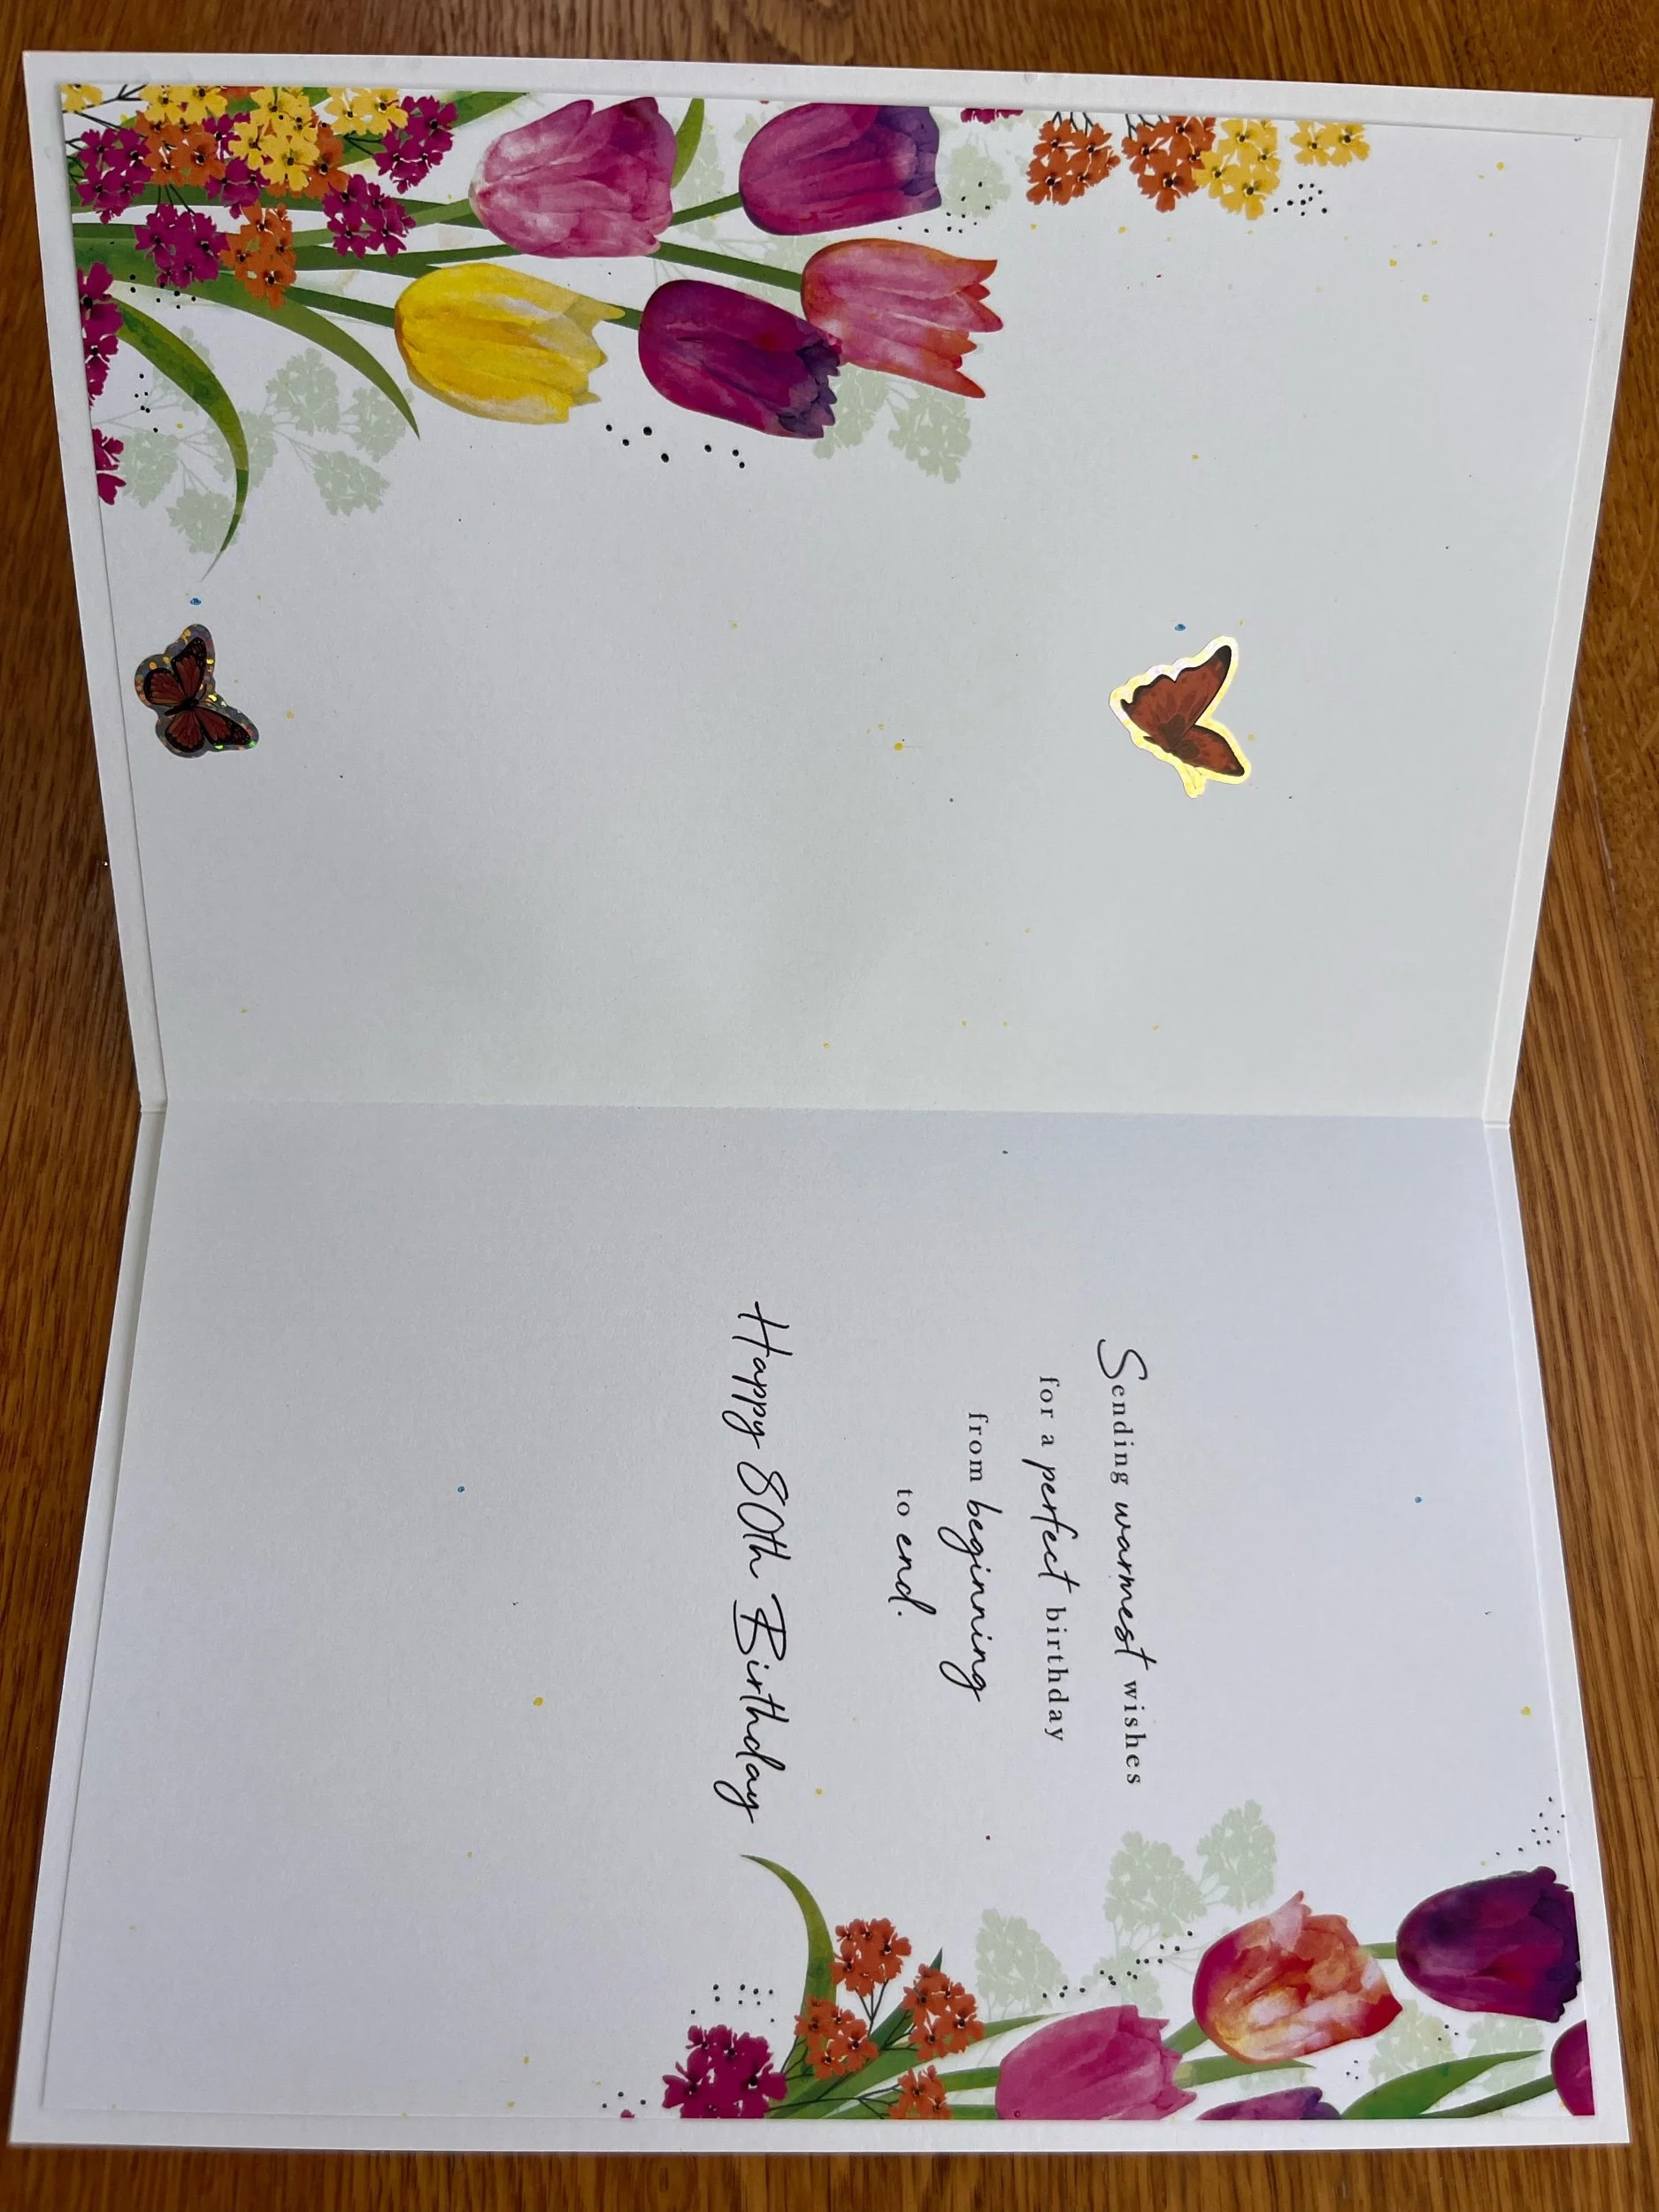 Sending warmest wishes
for a perfect birthday
from beginning
to end.
Happy 80th Birthday